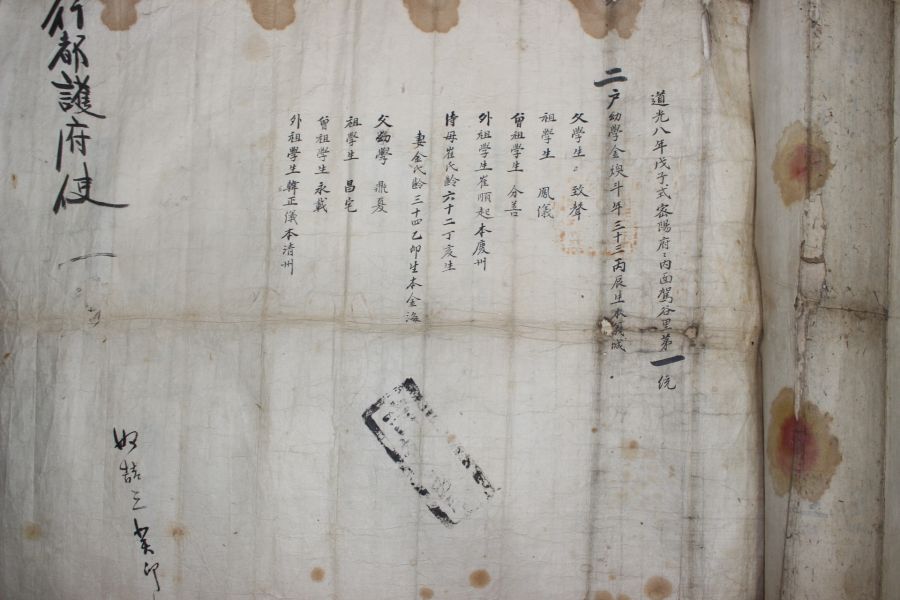 道光八年戊子式密陽府〻內面駕谷里第一統
二戶幼學金煥斗年三十三丙辰生本義城
父學生 致聲
祖學生 鳳儀
曾祖學生 介善
外祖學生崔順起本慶州
侍母崔氏齡六十二丁亥生
妻金氏齡三十四乙卯生本金海
父幼學 鼎夏
祖學生 昌宅
曾祖學生永載
外祖學生韓正儀本清州
行都護府使
奴喆三癸卯